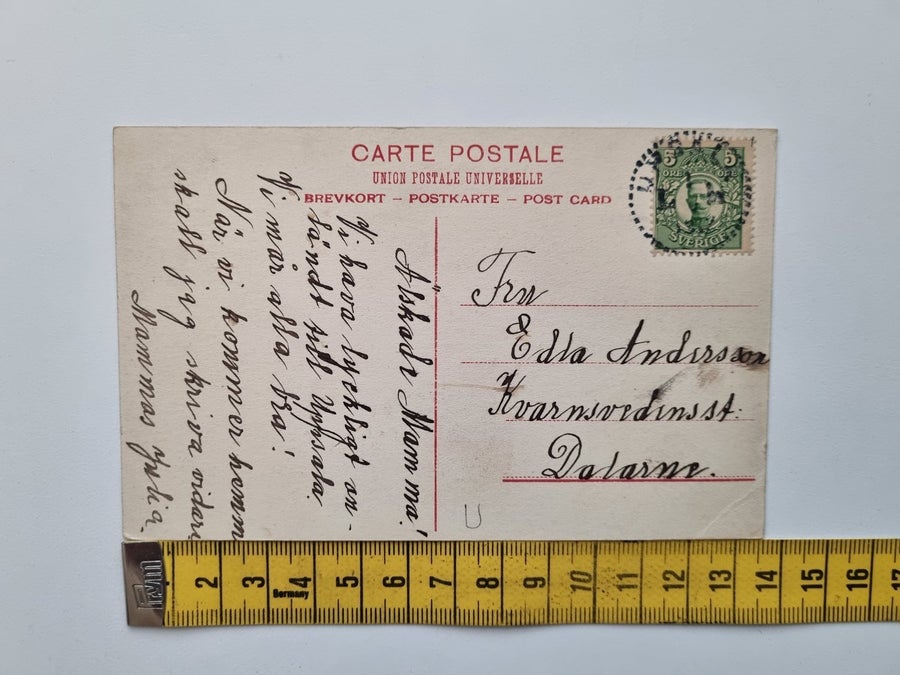 CARTE POSTALE
UNION POSTALE UNIVERSELLE
BREVKORT – POSTKARTE – POST CARD
5 5
ÖRE ÖRE
SVERIGE
Älskade Mamma!
Vi hava lyckligt an-
ländt till Uppsala.
Vi mår alla bra!
När vi kommer hemm
skall jag skriva vidare
Mammas
Fru
Edla Andersson
Kvarnsvedensst:
Dalarne.
U
2 3 4 5 6 7 8 9 10 11 12 13 14 15 16 17
Germany